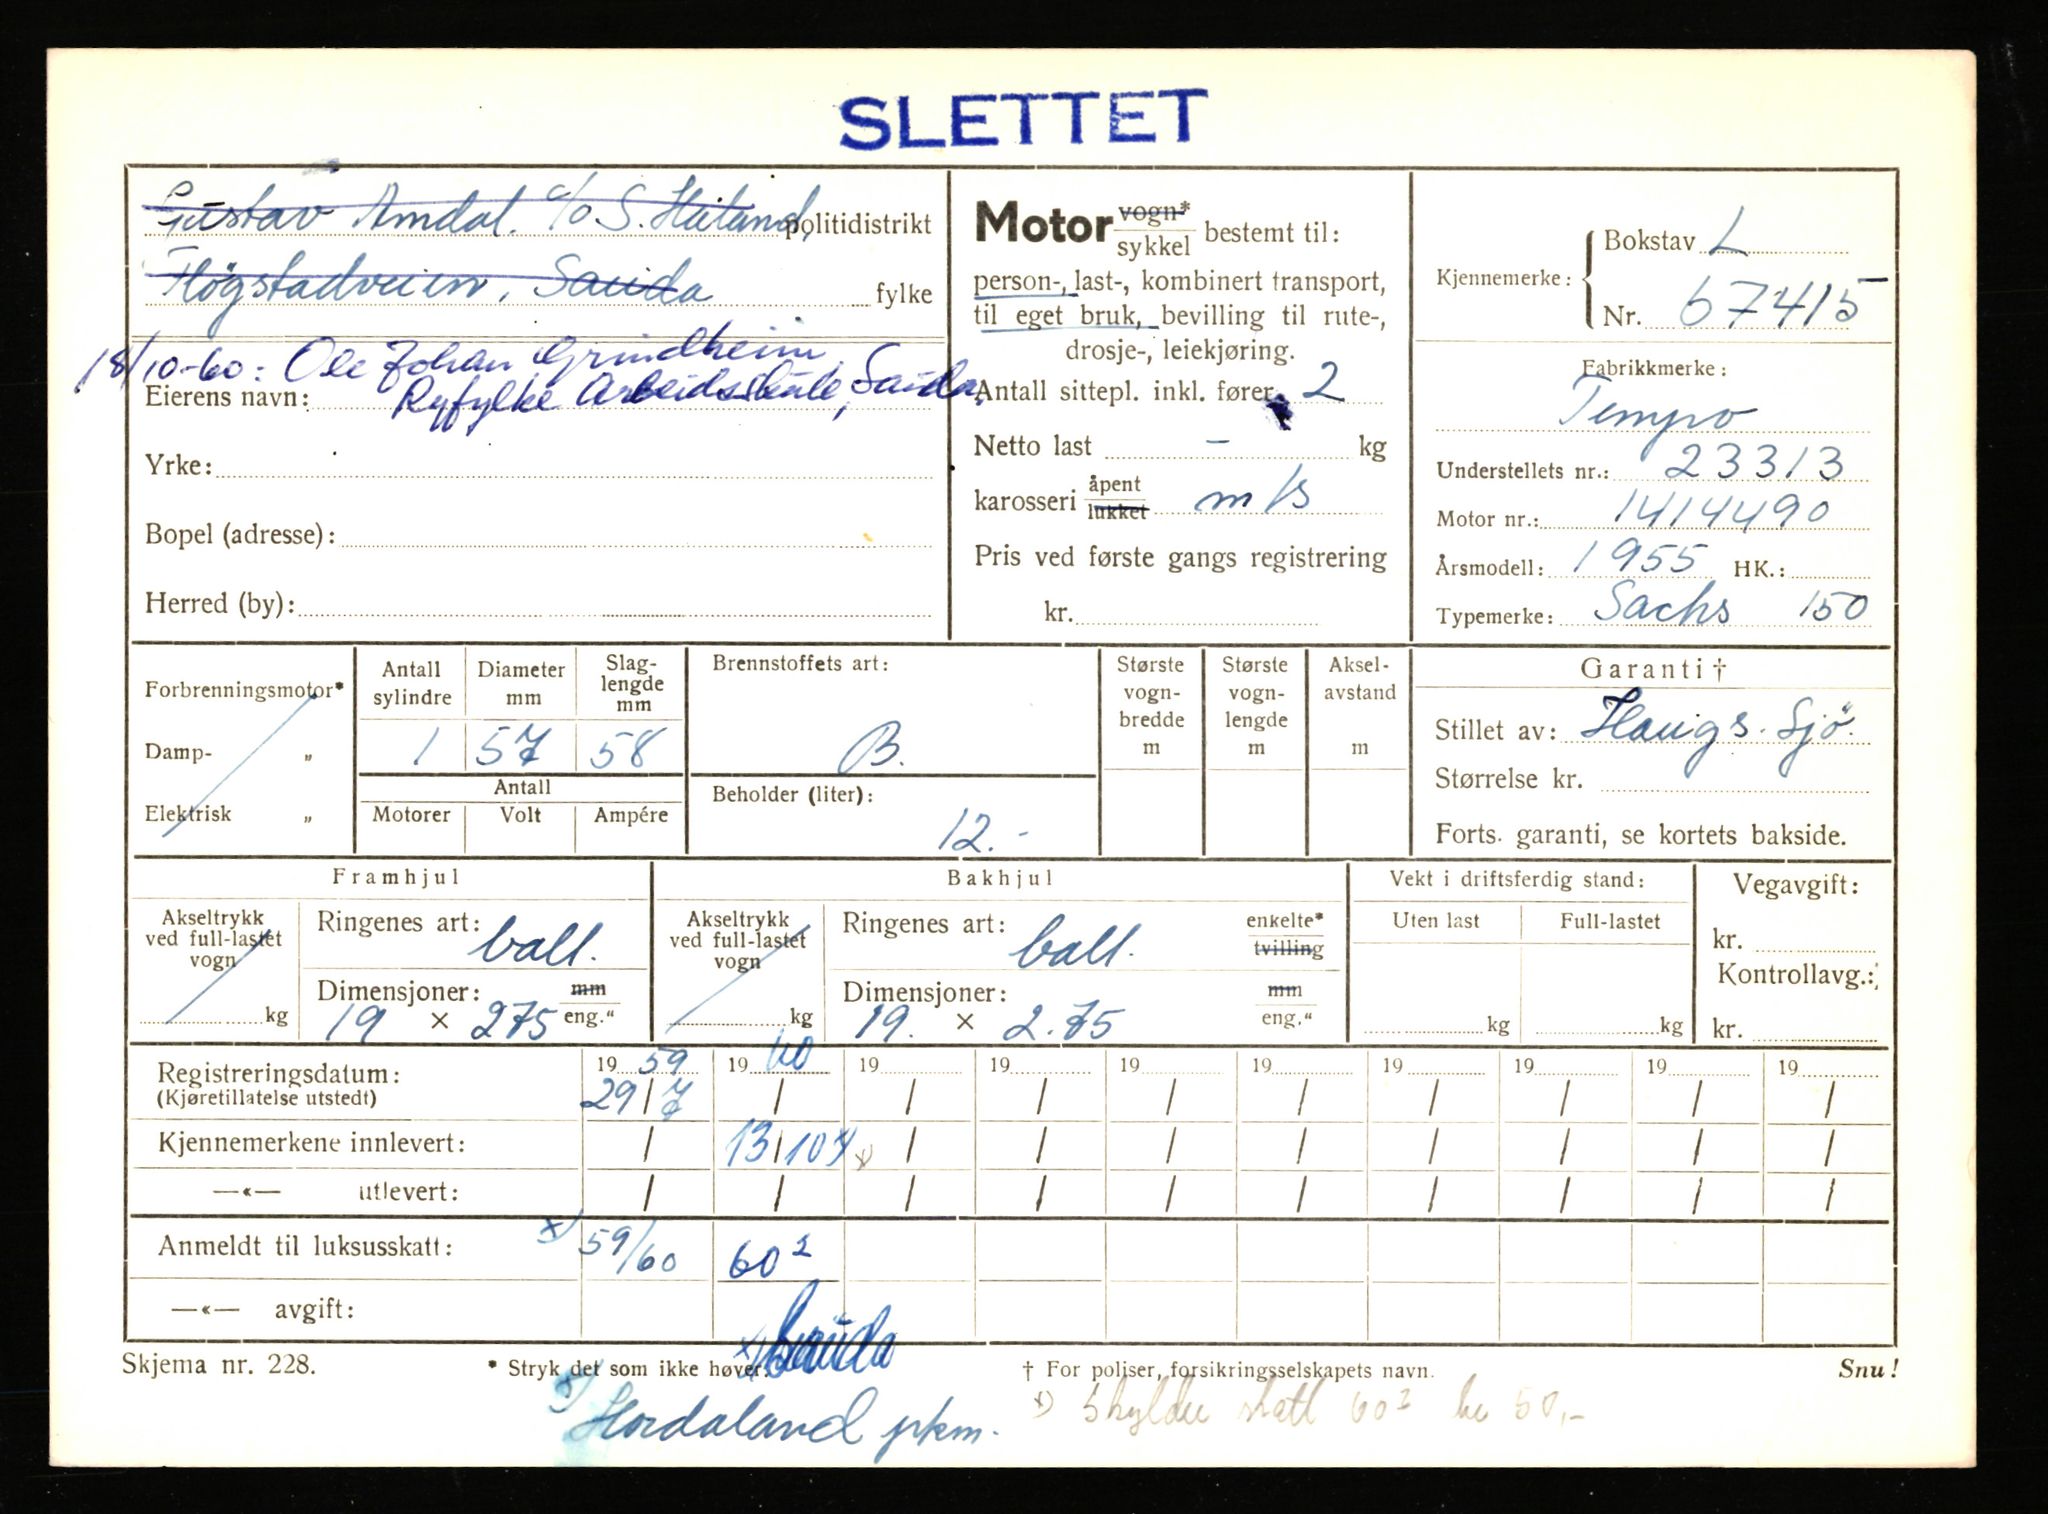 SLETTET
Gustav Amdal. c/o S. Heiland, politidistrikt
Fløgstadveien, Sauda fylke
18/10-60: Ole Johan Grindheim,
Eierens navn: Ryfylke Arbeidsskule, Sauda.
Yrke:
Bopel (adresse):
Herred (by):
Motor vogn* sykkel bestemt til:
person-, last-, kombinert transport,
til eget bruk, bevilling til rute-,
drosje-, leiekjøring.
Antall sittepl. inkl. fører 2
Netto last - kg
karosseri åpent lukket m/s
Pris ved første gangs registrering
kr.
Kjennemerke: Bokstav L
Nr. 67415
Fabrikkmerke:
Tempo
Understellets nr.: 23313
Motor nr.: 1414490
Årsmodell: 1955 HK.:
Typemerke: Sachs 150
Forbrenningsmotor*
Damp- „
Elektrisk „
Antall sylindre 1
Diameter mm 57
Slag-lengde mm 58
Antall
Motorer Volt Ampére
Brennstoffets art:
B.
Beholder (liter):
12.-
Største vogn-bredde m
Største vogn-lengde m
Aksel-avstand m
Garanti †
Stillet av: Haugs. Sjø.
Størrelse kr.
Forts. garanti, se kortets bakside.
Framhjul
Akseltrykk ved full-lastet vogn kg
Ringenes art: ball.
Dimensjoner: mm
19 × 275 eng."
Bakhjul
Akseltrykk ved full-lastet vogn kg
Ringenes art: ball. enkelte* tvilling
Dimensjoner: mm
19. × 2.75 eng."
Vekt i driftsferdig stand:
Uten last Full-lastet
kg kg
Vegavgift:
kr.
Kontrollavg.:
kr.
Registreringsdatum: 19 59 19 60 19 19 19 19 19 19 19 19
(Kjøretillatelse utstedt) 29/7 / / / / / / / / /
Kjennemerkene innlevert: / 13/10 x) x) / / / / / / / /
—«— utlevert: / / / / / / / / / /
Anmeldt til luksusskatt: x) 59/60 60²
—«— avgift:
x) Sauda
Skjema nr. 228. * Stryk det som ikke høver. † For poliser, forsikringsselskapets navn. Snu!
x) Hordaland pkm.
x) Skylder skatt 60² kr 50,-